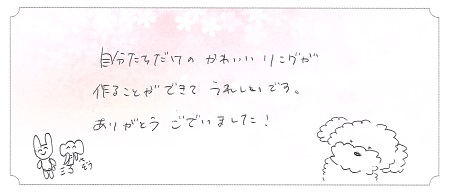 自分たちだけの かわいい リングが
作ることができて うれしいです。
ありがとう ございました!